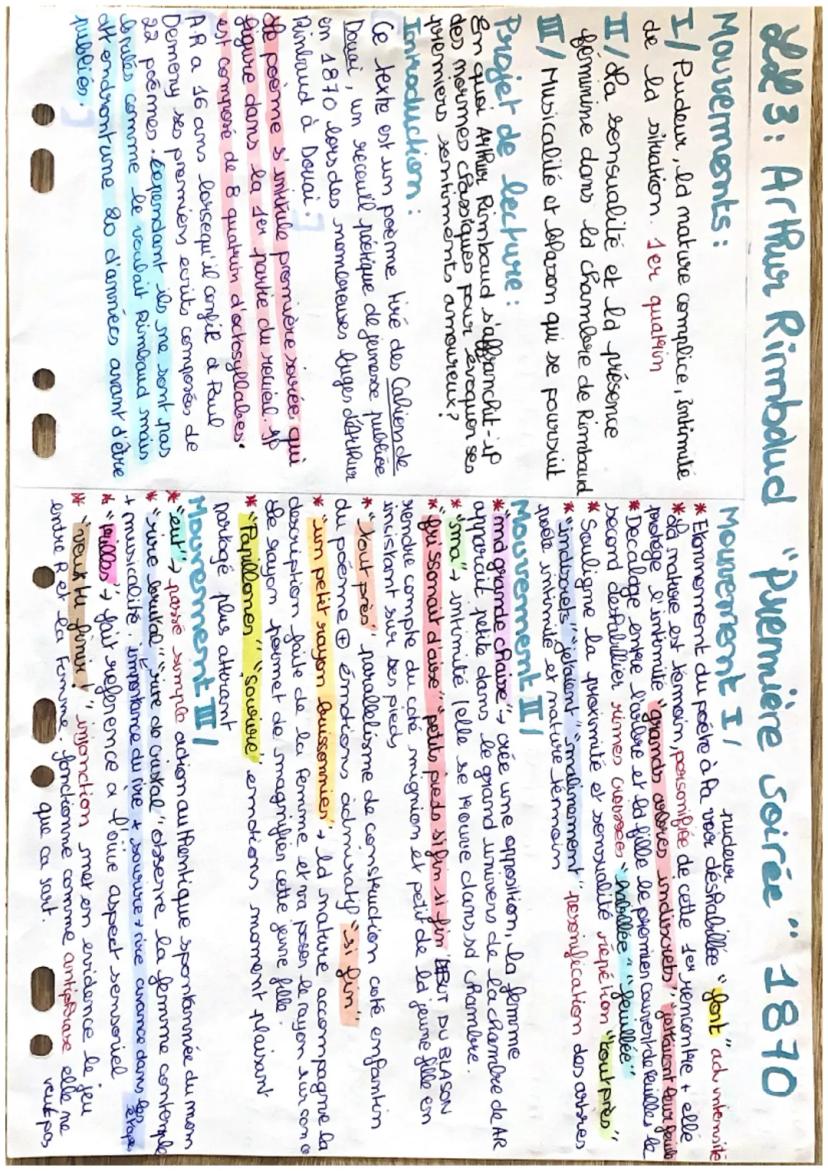 LL 3: Arthur Rimbaud "Première soirée" 1870
Mouvements:
I/ Pudeur, la nature complice, intimité
de la situation. 1er quatrin
II/ La sensualité et la présence
féminine dans la chambre de Rimbaud
III/ Musicalité et blason qui se poursuit
Projet de lecture:
En quoi Arthur Rimbaud s'affranchit-il
des normes classiques pour évoquer ses
premiers sentiments amoureux?
Introduction:
Ce texte est un poème tiré des Cahiers de
Douai, un receuil poétique de jeunesse publiée
en 1870 lors des nombreuses fuges d'Arthur
Rimbaud à Douai.
Le poème s'intitule première soirée qui
figure dans la 1er partie du receuil. Il
est composé de 8 quatrain d'octosyllabes.
AR a 16 ans lorsequ'il confie à Paul
Demeny ses premiers ecrits composés de
22 poèmes. Cependant ils ne sont pas
brulés comme le voulait Rimbaud mais
attendront une 20 d'années avant d'être
publiés.
Mouvement I/
pudeur
* Etonnement du poète à la voir déshabillée "fort" adv intensité
* la nature est témoin, personifiée de cette 1er rencontre + elle
protège l'intimité "grands arbres indiscrets" "jetaient leur feuillée"
* Décalage entre l'arbre et la fille le premier couvert de feuilles le
second deshabiller rimes croisées "habillée" "feuillée"
* Souligne la proximité et sensualité répétion "tout près"
* "indiscrets" "jetaient" "malinement" personification des arbres
poète intimité et nature témoin
Mouvement II/
* "ma grande chaise" → crée une opposition, la femme
apparait petite dans le grand univers de la chambre de AR
* "ma" → intimité (elle se trouve dans sa chambre.
* "frissonait d'aise" "petits pieds si fin si fin" DEBUT DU BLASON
rendre compte du coté mignon et petit de la jeune fille en
insistant sur ses pieds
* "tout près" parallélisme de construction coté enfantin
du poème ⊕ émotions admiratif "si fin"
* "un petit rayon buissonnier" → la nature accompagne la
description faite de la femme et va poser le rayon sur
le rayon permet de magnifier cette jeune fille.
* "Papillonner" "sourire" emotions moment plaisant
partagé plus attirant
Mouvement III/
* "eut" → passé simple action authentique spontannée du mom
* "rire brutal" "rire de cristal" observe la femme contemple
+ musicalité importance du rire + sourire → rire avance dans les étape
* "trilles" → fait reference a l'ouïe aspect sensoriel
* "veux tu finir!" injonction met en evidence le jeu
entre R et la femme fonctionne comme antiphrase elle ne
veut pas
que ca sart.